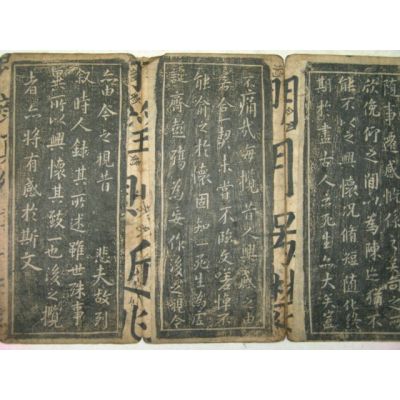 随事遷感慨係之矣向之
欣俛仰之間以為陳迹猶不
能不以之興懷况脩短随化終
期於盡古人云死生亦大矣豈
明月
不痛哉每攬昔人興感之由
若合一契未嘗不臨文嗟悼不
能喻之於懷固知一死生為虛
誕齊彭殤為妄作後之視今
則近
亦由今之視昔 悲夫故列
叙時人錄其所述雖世殊事
異所以興懷其致一也後之攬
者亦將有感於斯文